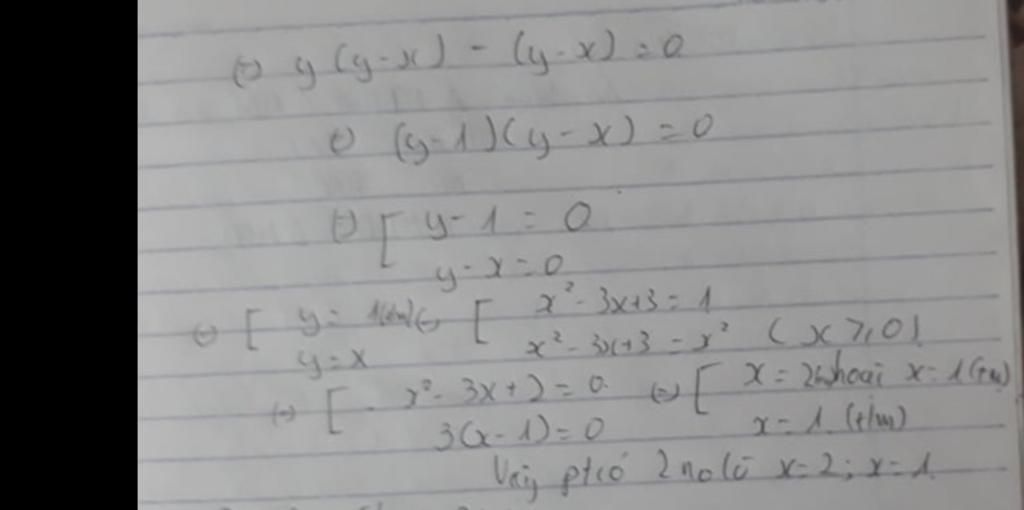 (=) y(y-x) - (y-x) = 0
(=) (y-1)(y-x) = 0
(=) [ y-1 = 0
y-x = 0
(=) [ y = 1(t/m) (=) [ x² - 3x+3 = 1
y = x x² - 3x+3 = x² (x ≥ 0)
(=) [ x² - 3x + 2 = 0 (=) [ x = 2 hoặc x = 1 (t/m)
3(x-1) = 0 x = 1 (t/m)
Vậy pt có 2 no là x=2; x=1